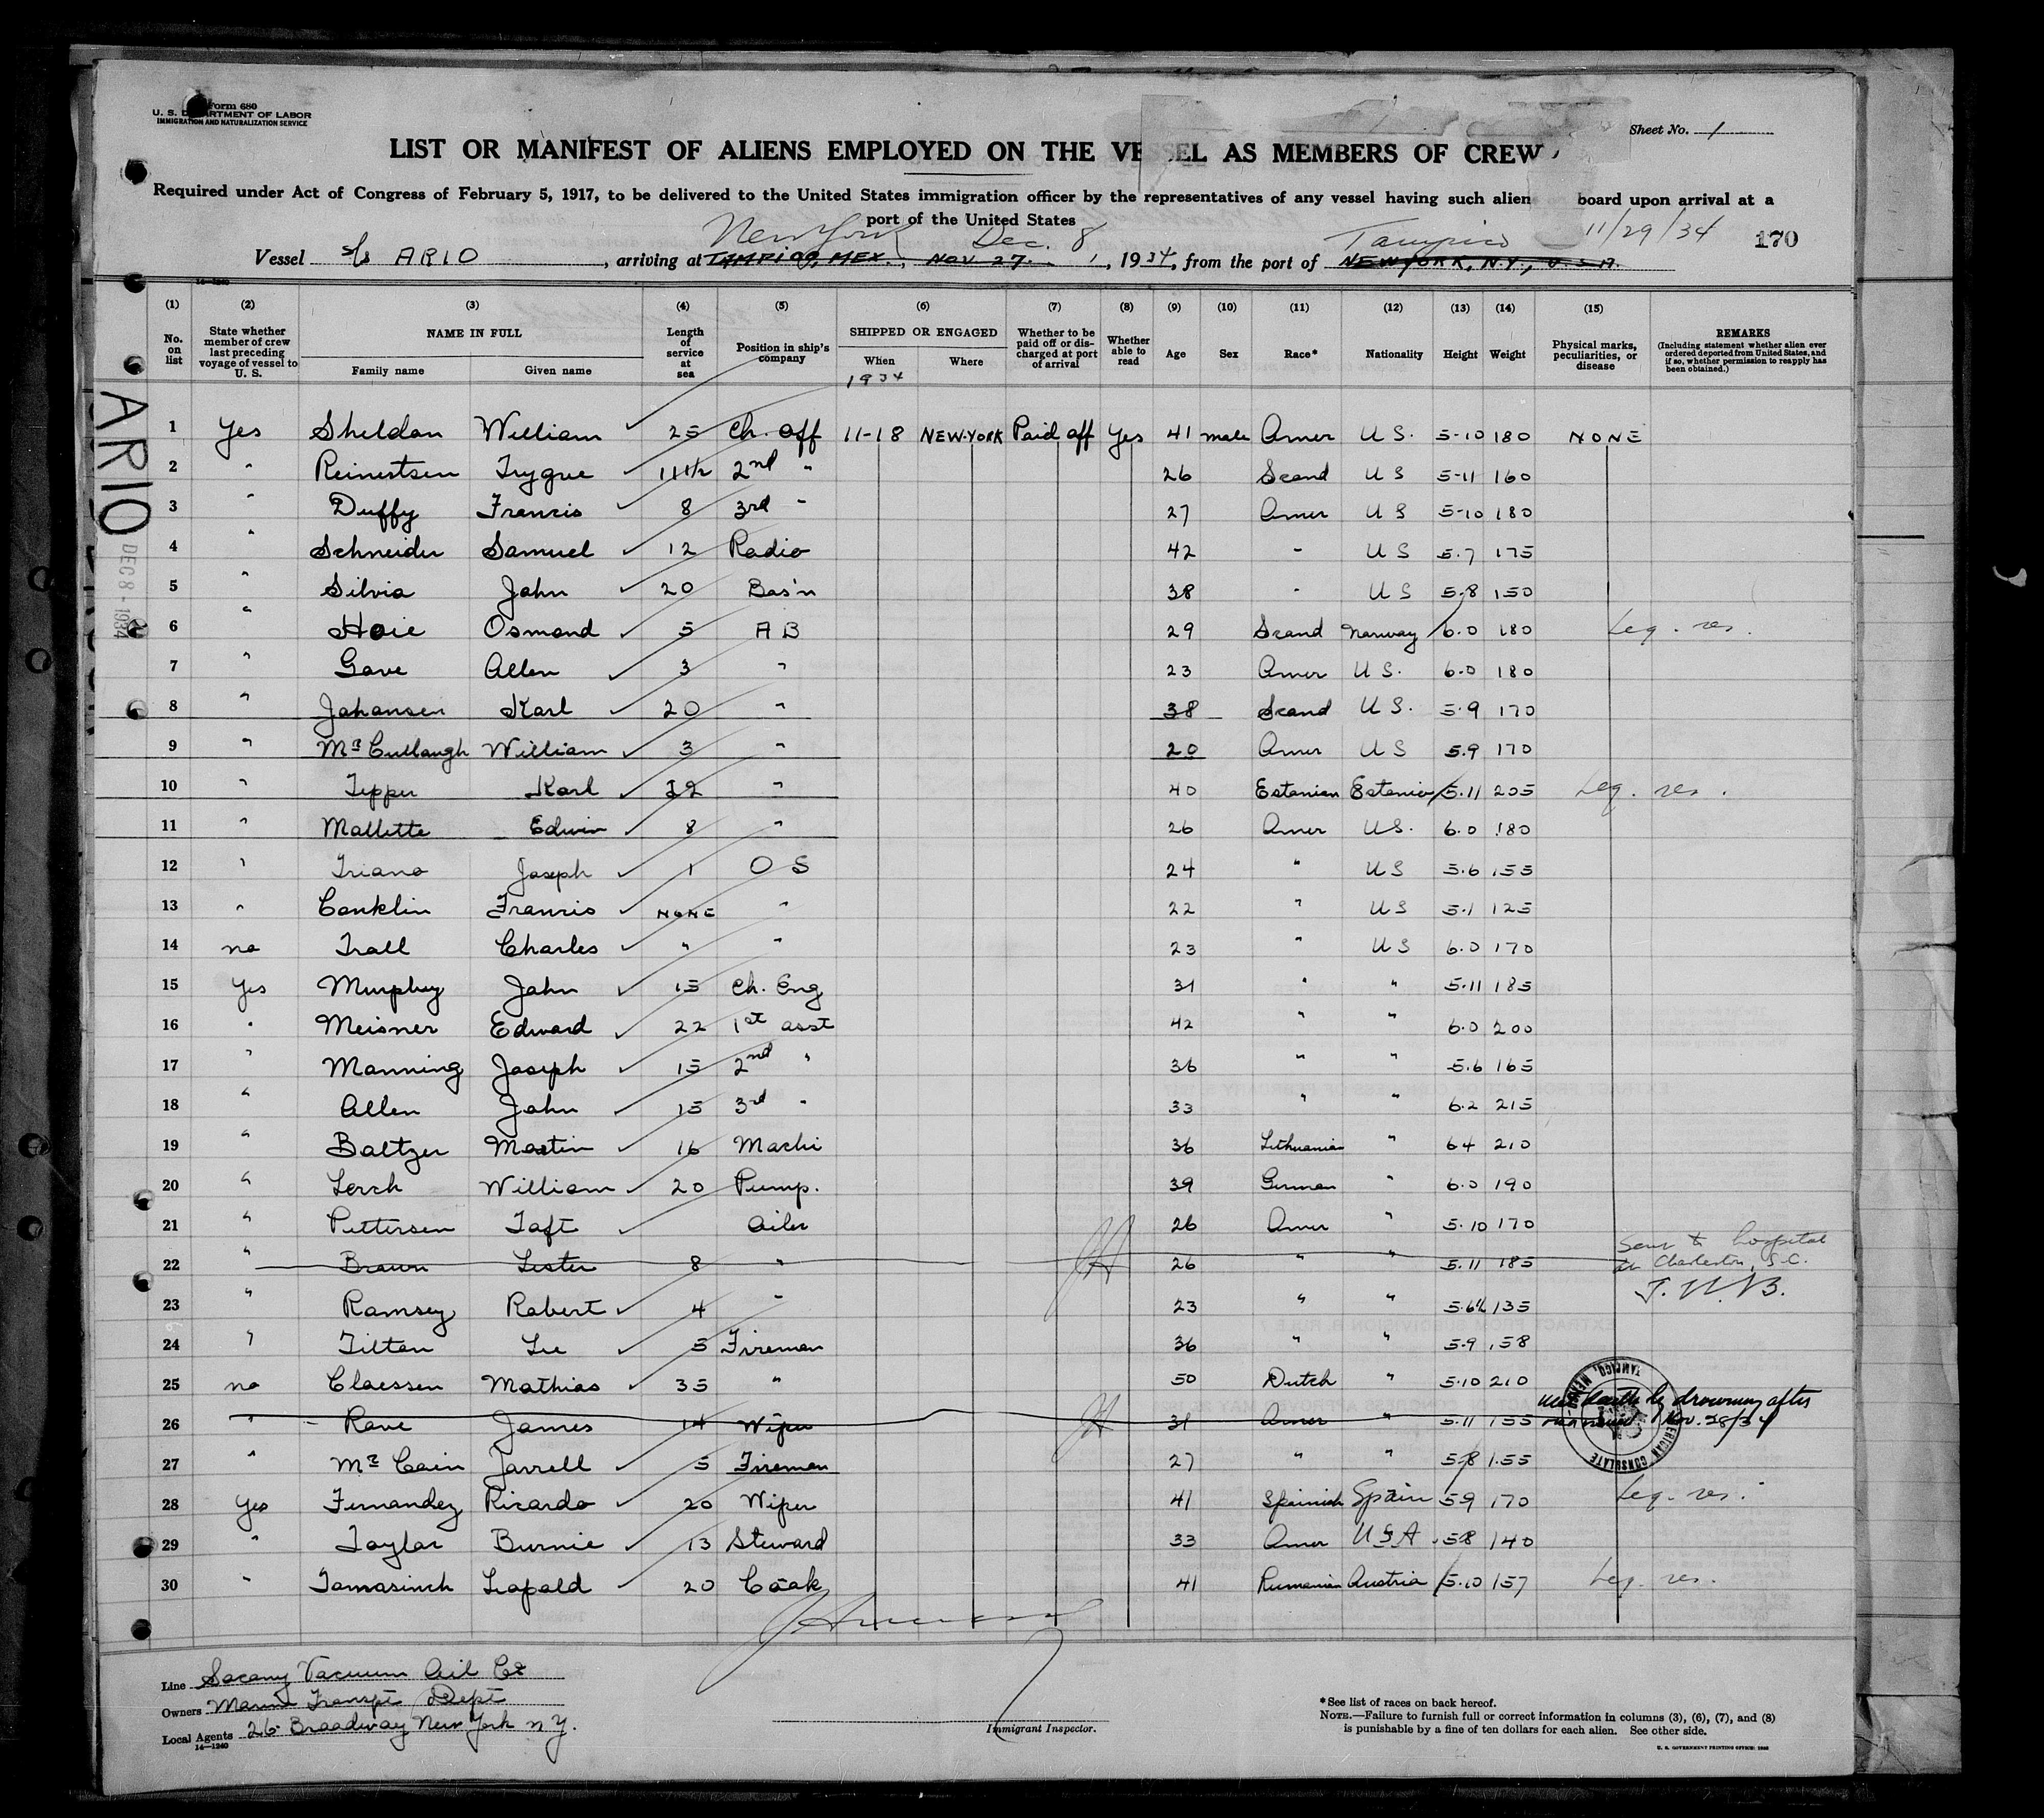 Form 680
U. S. DEPARTMENT OF LABOR
IMMIGRATION AND NATURALIZATION SERVICE
Sheet No. 1
LIST OR MANIFEST OF ALIENS EMPLOYED ON THE VESSEL AS MEMBERS OF CREW
Required under Act of Congress of February 5, 1917, to be delivered to the United States immigration officer by the representatives of any vessel having such alien board upon arrival at a
port of the United States
New York Dec. 8 Tampico 11/29/34 170
Vessel S/S ARIO, arriving at TAMPICO, MEX., NOV 27, 1934, from the port of NEW YORK, N.Y., U.S.A.
14-1240
(1) (2) (3) (4) (5) (6) (7) (8) (9) (10) (11) (12) (13) (14) (15)
No. on list State whether member of crew last preceding voyage of vessel to U. S. NAME IN FULL Family name Given name Length of service at sea Position in ship's company SHIPPED OR ENGAGED When Where Whether to be paid off or discharged at port of arrival Whether able to read Age Sex Race* Nationality Height Weight Physical marks, peculiarities, or disease REMARKS (Including statement whether alien ever ordered deported from United States, and if so, whether permission to reapply has been obtained.)
1934
ARIO
DEC 8 - 1934
1 Yes Sheldon William 25 Ch. Off 11-18 NEW-YORK Paid off Yes 41 male Amer U S. 5-10 180 NONE
2 " Reinertsen Trygve 11 1/2 2nd " 26 Scand U S 5-11 160
3 " Duffy Francis 8 3rd " 27 Amer U S 5-10 180
4 " Schneider Samuel 12 Radio 42 - U S 5.7 175
5 " Silvia John 20 Bos'n 38 - U S 5.8 150
6 " Hoie Osmond 5 A B 29 Scand Norway 6.0 180 Leg. res.
7 " Gave Allen 3 " 23 Amer U S. 6.0 180
8 " Johansen Karl 20 " 38 Scand U S. 5.9 170
9 " McCullaugh William 3 " 20 Amer U S 5.9 170
10 " Tepper Karl 12 " 40 Estonian Estonia 5.11 205 Leg. res.
11 " Mallette Edwin 8 " 26 Amer U S. 6.0 180
12 " Triano Joseph 1 O S 24 " U S 5.6 155
13 " Conklin Francis NONE " 22 " U S 5.1 125
14 no Trall Charles " " 23 " U S 6.0 170
15 Yes Murphy John 15 Ch. Eng 31 " " 5.11 185
16 " Meisner Edward 22 1st asst 42 " " 6.0 200
17 " Manning Joseph 15 2nd " 36 " " 5.6 165
18 " Allen John 15 3rd " 33 " " 6.2 215
19 " Baltzer Martin 16 Machi 36 Lithuanian " 64 210
20 " Lerch William 20 Pump. 39 German " 6.0 190
21 " Pettersen Taft Oiler 26 Amer " 5.10 170
22 " Brown Lester 8 " 26 " " 5.11 185 Sent to hospital
at Charleston, S.C.
23 " Ramsey Robert 4 " 23 " " 5.6 1/2 135
24 " Tilton Lee 5 Fireman 36 " " 5.9 158
25 no Claessen Mathias 35 " 50 Dutch " 5.10 210
26 " Rave James 14 Wiper 31 Amer " 5.11 155 met death by drowning after
Nov. 28/34
AMERICAN CONSULATE TAMPICO, MEXICO
27 " McCain Jarrell 5 Fireman 27 " " 5.8 155
28 Yes Fernandez Ricardo 20 Wiper 41 Spainish Spain 5.9 170 Leg. res.
29 " Taylor Burnie 13 Steward 33 Amer U S A 5.8 140
30 " Tomasinch Leopold 20 Cook 41 Rumanian Austria 5.10 157 Leg. res.
Line Socony Vacuum Oil Co
Owners Marine Transpt Dept
Local Agents 26 Broadway New York N Y.
14-1240
Immigrant Inspector.
*See list of races on back hereof.
NOTE.—Failure to furnish full or correct information in columns (3), (6), (7), and (8)
is punishable by a fine of ten dollars for each alien. See other side.
U. S. GOVERNMENT PRINTING OFFICE